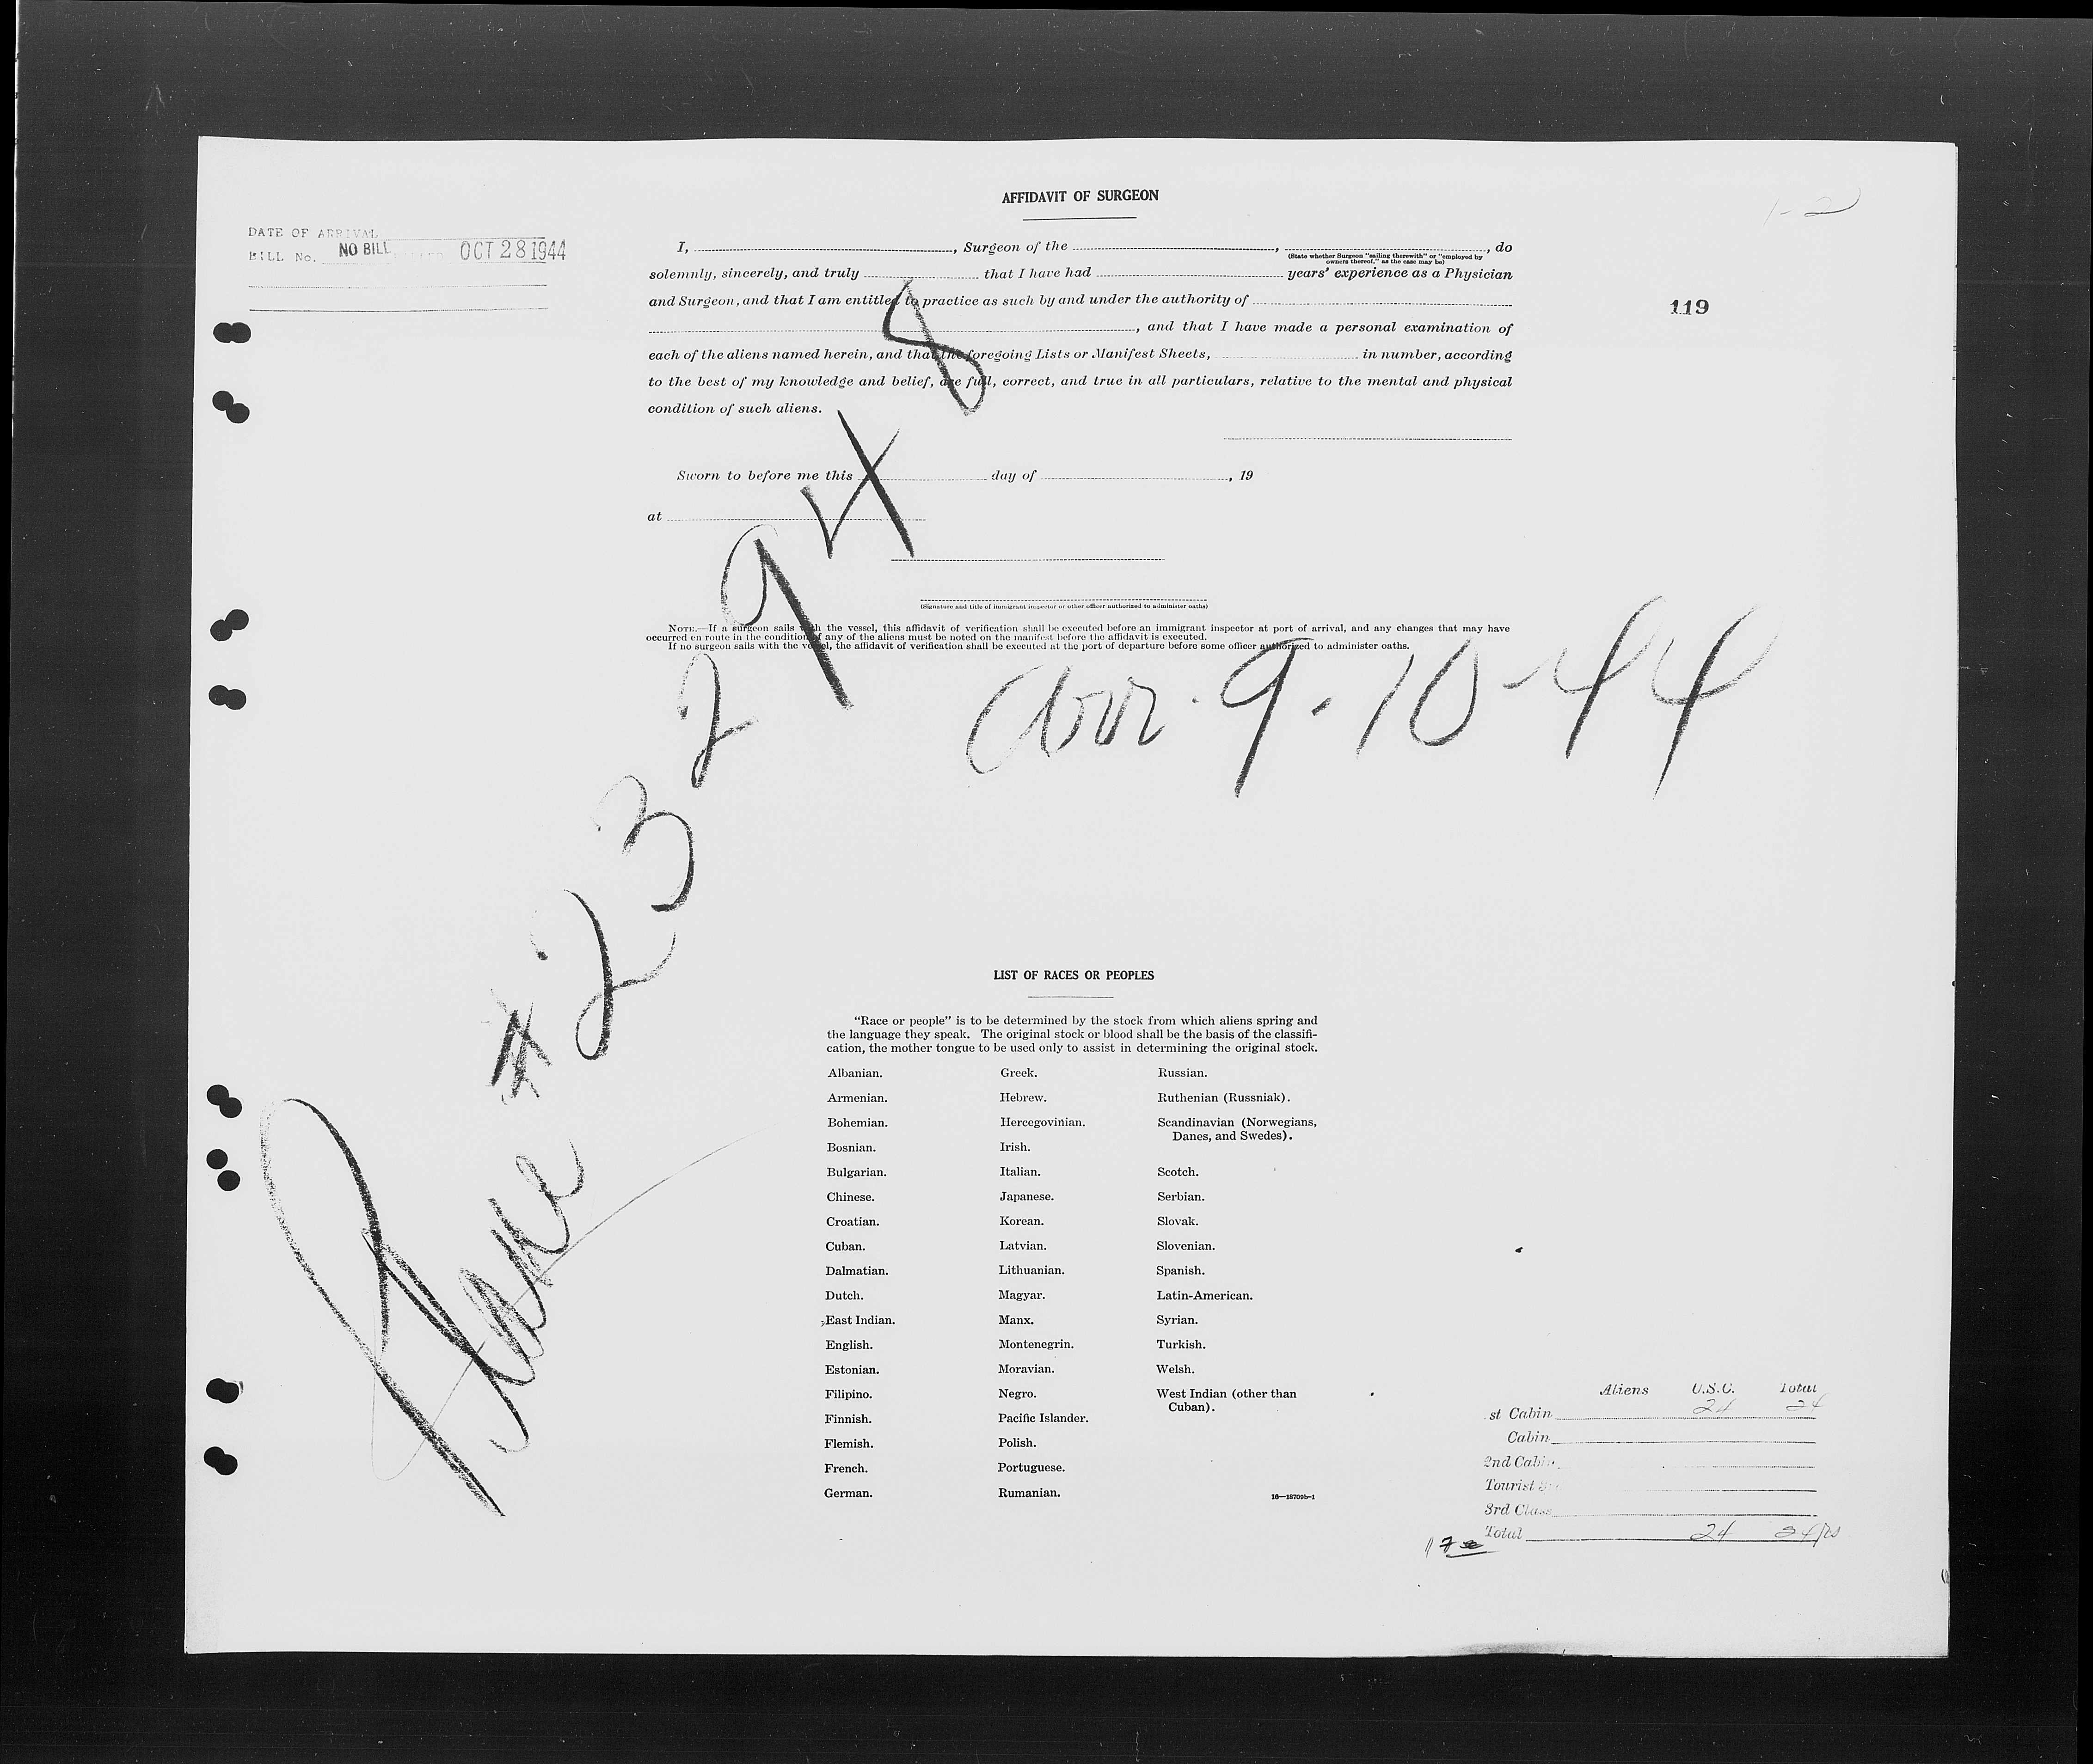 AFFIDAVIT OF SURGEON
1-2
DATE OF ARRIVAL
BILL No. NO BILL OCT 28 1944
119
I, , Surgeon of the , , do
(State whether Surgeon "sailing therewith" or "employed by
owners thereof," as the case may be)
solemnly, sincerely, and truly that I have had years' experience as a Physician
and Surgeon, and that I am entitled to practice as such by and under the authority of
, and that I have made a personal examination of
each of the aliens named herein, and that the foregoing Lists or Manifest Sheets, in number, according
to the best of my knowledge and belief, are full, correct, and true in all particulars, relative to the mental and physical
condition of such aliens.
Sworn to before me this day of , 19
at
(Signature and title of immigrant inspector or other officer authorized to administer oaths)
NOTE.—If a surgeon sails with the vessel, this affidavit of verification shall be executed before an immigrant inspector at port of arrival, and any changes that may have
occurred en route in the condition of any of the aliens must be noted on the manifest before the affidavit is executed.
If no surgeon sails with the vessel, the affidavit of verification shall be executed at the port of departure before some officer authorized to administer oaths.
Plane #232948
arr. 9-10-44
LIST OF RACES OR PEOPLES
"Race or people" is to be determined by the stock from which aliens spring and
the language they speak. The original stock or blood shall be the basis of the classifi-
cation, the mother tongue to be used only to assist in determining the original stock.
Albanian.
Armenian.
Bohemian.
Bosnian.
Bulgarian.
Chinese.
Croatian.
Cuban.
Dalmatian.
Dutch.
East Indian.
English.
Estonian.
Filipino.
Finnish.
Flemish.
French.
German.
Greek.
Hebrew.
Hercegovinian.
Irish.
Italian.
Japanese.
Korean.
Latvian.
Lithuanian.
Magyar.
Manx.
Montenegrin.
Moravian.
Negro.
Pacific Islander.
Polish.
Portuguese.
Rumanian.
Russian.
Ruthenian (Russniak).
Scandinavian (Norwegians,
Danes, and Swedes).
Scotch.
Serbian.
Slovak.
Slovenian.
Spanish.
Latin-American.
Syrian.
Turkish.
Welsh.
West Indian (other than
Cuban).
16—18709b-1
Aliens U.S.C. Total
st Cabin 24 24
Cabin
2nd Cabin
Tourist
3rd Class
Total 24 24